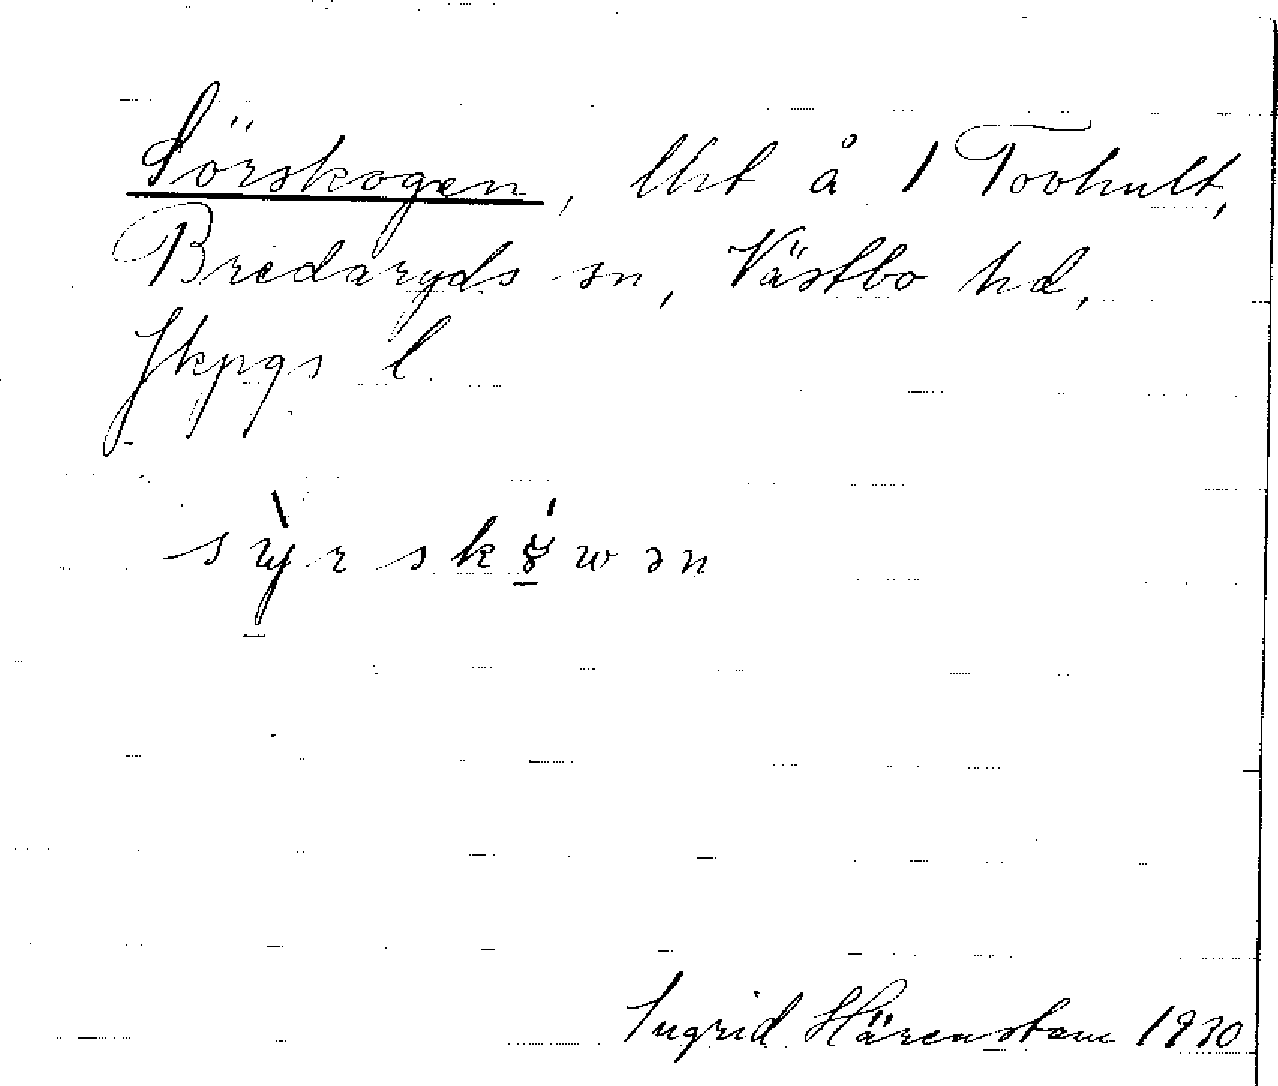 Sörskogen, lht å 1 Tovhult,
Bredaryds sn, Västbo hd,
Jkpgs l.
Ingrid Härenstam 1930